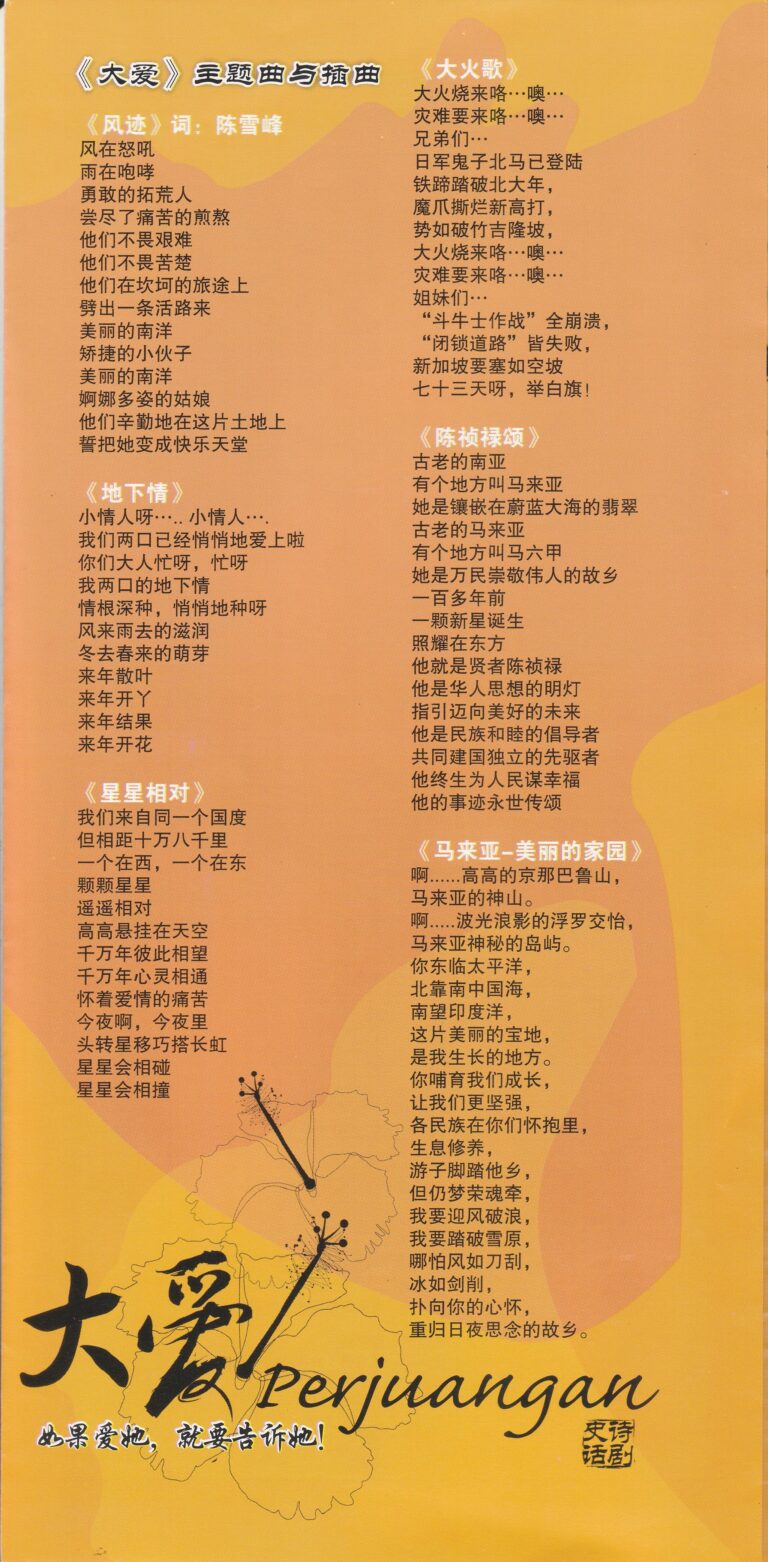 《大爱》主题曲与插曲
《风迹》词：陈雪峰
风在怒吼
雨在咆哮
勇敢的拓荒人
尝尽了痛苦的煎熬
他们不畏艰难
他们不畏苦楚
他们在坎坷的旅途上
劈出一条活路来
美丽的南洋
矫捷的小伙子
美丽的南洋
婀娜多姿的姑娘
他们辛勤地在这片土地上
誓把她变成快乐天堂
《地下情》
小情人呀….. 小情人….
我们两口已经悄悄地爱上啦
你们大人忙呀，忙呀
我两口的地下情
情根深种，悄悄地种呀
风来雨去的滋润
冬去春来的萌芽
来年散叶
来年开丫
来年结果
来年开花
《星星相对》
我们来自同一个国度
但相距十万八千里
一个在西，一个在东
颗颗星星
遥遥相对
高高悬挂在天空
千万年彼此相望
千万年心灵相通
怀着爱情的痛苦
今夜啊，今夜里
头转星移巧搭长虹
星星会相碰
星星会相撞
《大火歌》
大火烧来咯…噢…
灾难要来咯…噢…
兄弟们…
日军鬼子北马已登陆
铁蹄踏破北大年，
魔爪撕烂新高打，
势如破竹吉隆坡，
大火烧来咯…噢…
灾难要来咯…噢…
姐妹们…
“斗牛士作战”全崩溃，
“闭锁道路”皆失败，
新加坡要塞如空坡
七十三天呀，举白旗！
《陈祯禄颂》
古老的南亚
有个地方叫马来亚
她是镶嵌在蔚蓝大海的翡翠
古老的马来亚
有个地方叫马六甲
她是万民崇敬伟人的故乡
一百多年前
一颗新星诞生
照耀在东方
他就是贤者陈祯禄
他是华人思想的明灯
指引迈向美好的未来
他是民族和睦的倡导者
共同建国独立的先驱者
他终生为人民谋幸福
他的事迹永世传颂
《马来亚-美丽的家园》
啊......高高的京那巴鲁山，
马来亚的神山。
啊.....波光浪影的浮罗交怡，
马来亚神秘的岛屿。
你东临太平洋，
北靠南中国海，
南望印度洋，
这片美丽的宝地，
是我生长的地方。
你哺育我们成长，
让我们更坚强，
各民族在你们怀抱里，
生息修养，
游子脚踏他乡，
但仍梦荣魂牵，
我要迎风破浪，
我要踏破雪原，
哪怕风如刀刮，
冰如剑削，
扑向你的心怀，
重归日夜思念的故乡。
大爱 Perjuangan
如果爱她，就要告诉她！
史诗
话剧